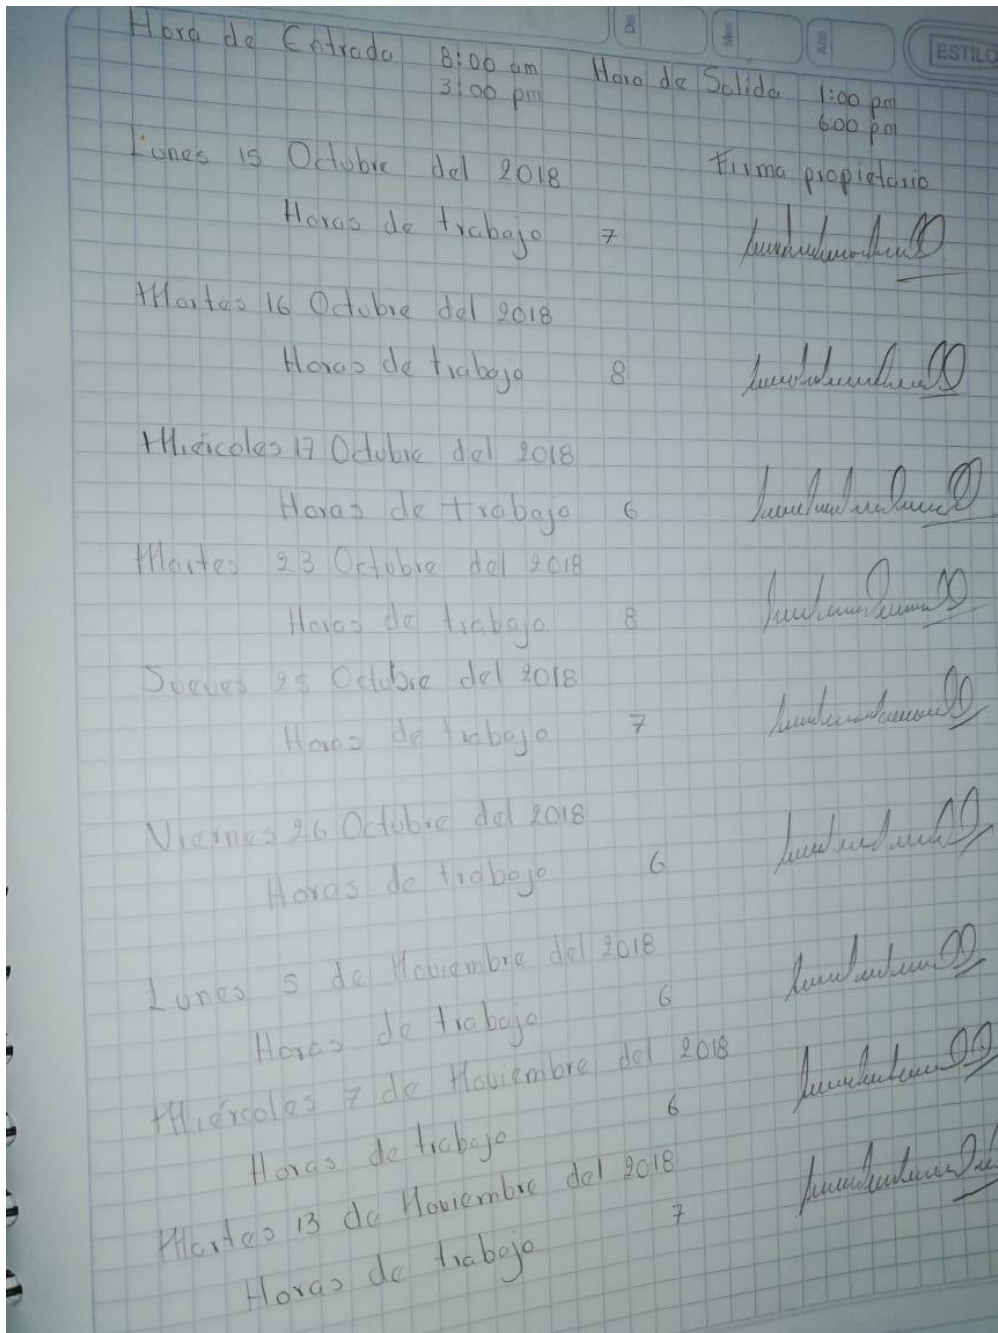 Mes
Año
ESTILO
Hora de Entrada 8:00 am Hora de Salida 1:00 pm
3:00 pm 6:00 pm
Lunes 15 Octubre del 2018 Firma propietario
Horas de trabajo 7
Martes 16 Octubre del 2018
Horas de trabajo 8
Miércoles 17 Octubre del 2018
Horas de trabajo 6
Martes 23 Octubre del 2018
Horas de trabajo 8
Jueves 25 Octubre del 2018
Horas de trabajo 7
Viernes 26 Octubre del 2018
Horas de trabajo 6
Lunes 5 de Noviembre del 2018
Horas de trabajo 6
Miércoles 7 de Noviembre del 2018
Horas de trabajo 6
Martes 13 de Noviembre del 2018
Horas de trabajo 7